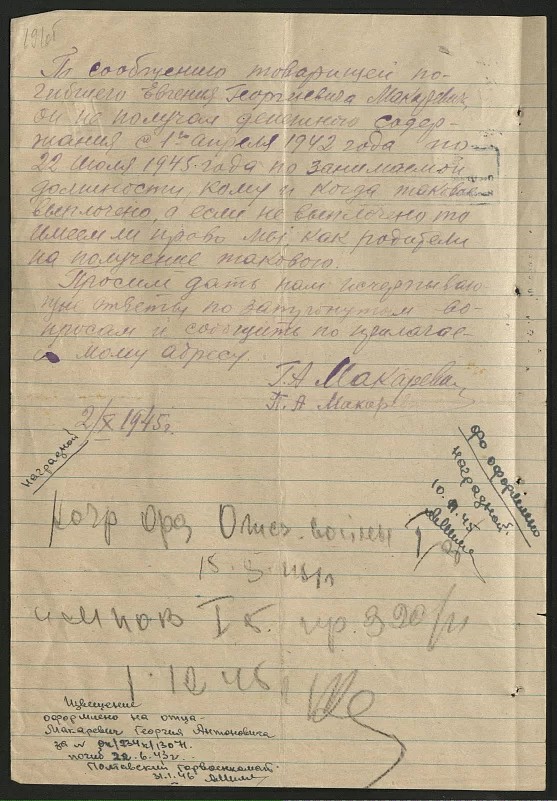 По сообщению товарищей по-
гибшего Евгения Георгиевича Макаревич
он не получал денежного содер-
жания с 1го апреля 1942 года по
22 июля 1945 года по занимаемой
должности, кому и когда таковое
выплочено, а если не выплочено то
имеем ли право мы, как родители
на получение такового.
Просим дать нам исчерпываю-
щие ответы по затронутым во-
просам и сообщить по прилагае-
мому адресу.
Г.А Макаревич
П.А Макар
2/X 1945г.
наградной
фо оформлено
наградной
10. 45
Отеч. войны I
15.
I б. пр. 3
1.12 45
Извещение
оформлено на отца-
Макаревич Георгия Антоновича
за №
погиб 22.6.43г.
Полтавский горвоенкомат
31.1.46